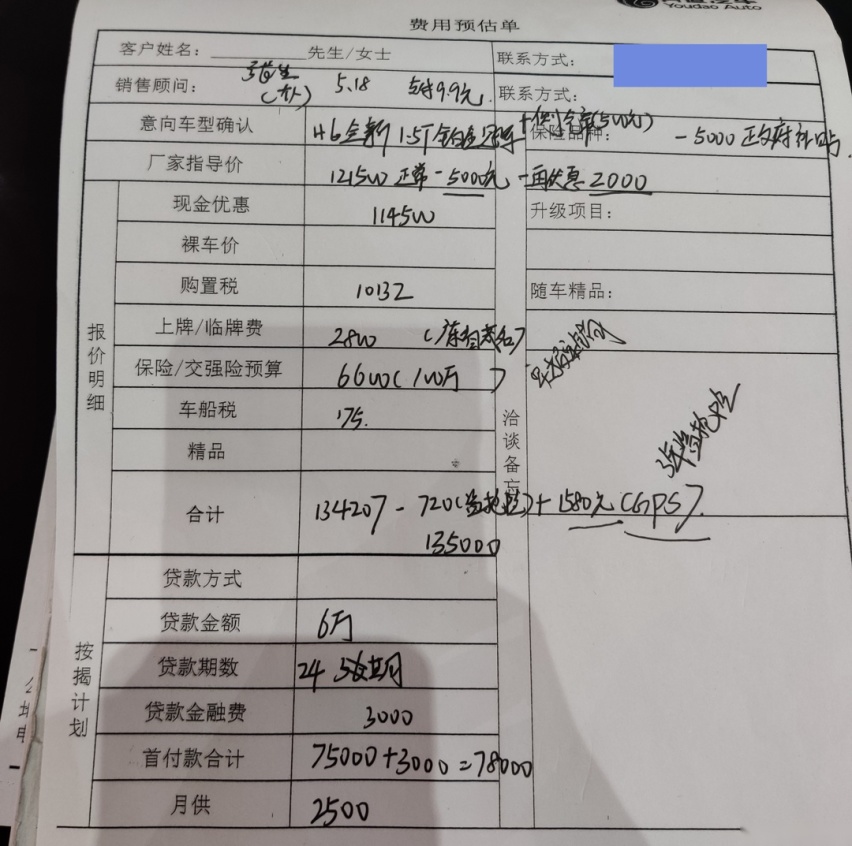 Youdao Auto
费用预估单
客户姓名：________先生/女士
联系方式：
销售顾问： 5.18 9.9元
联系方式：
意向车型确认 H6全新 1.5T 铂金
保险品种： -5000 政府补贴
厂家指导价 121500 正常 -5000元 -再优惠 2000
现金优惠 114500
升级项目：
裸车价
购置税 10132
随车精品：
上牌/临牌费 2800
保险/交强险预算 6600(100万)
车船税 175.
精品
合计 134207 - 720(盗抢险) + 1580元(GPS).
135000
3年盗抢险
报价明细
洽谈备忘
贷款方式
贷款金额 6万
贷款期数 24
贷款金融费 3000
首付款合计 75000+3000=78000
月供 2500
按揭计划